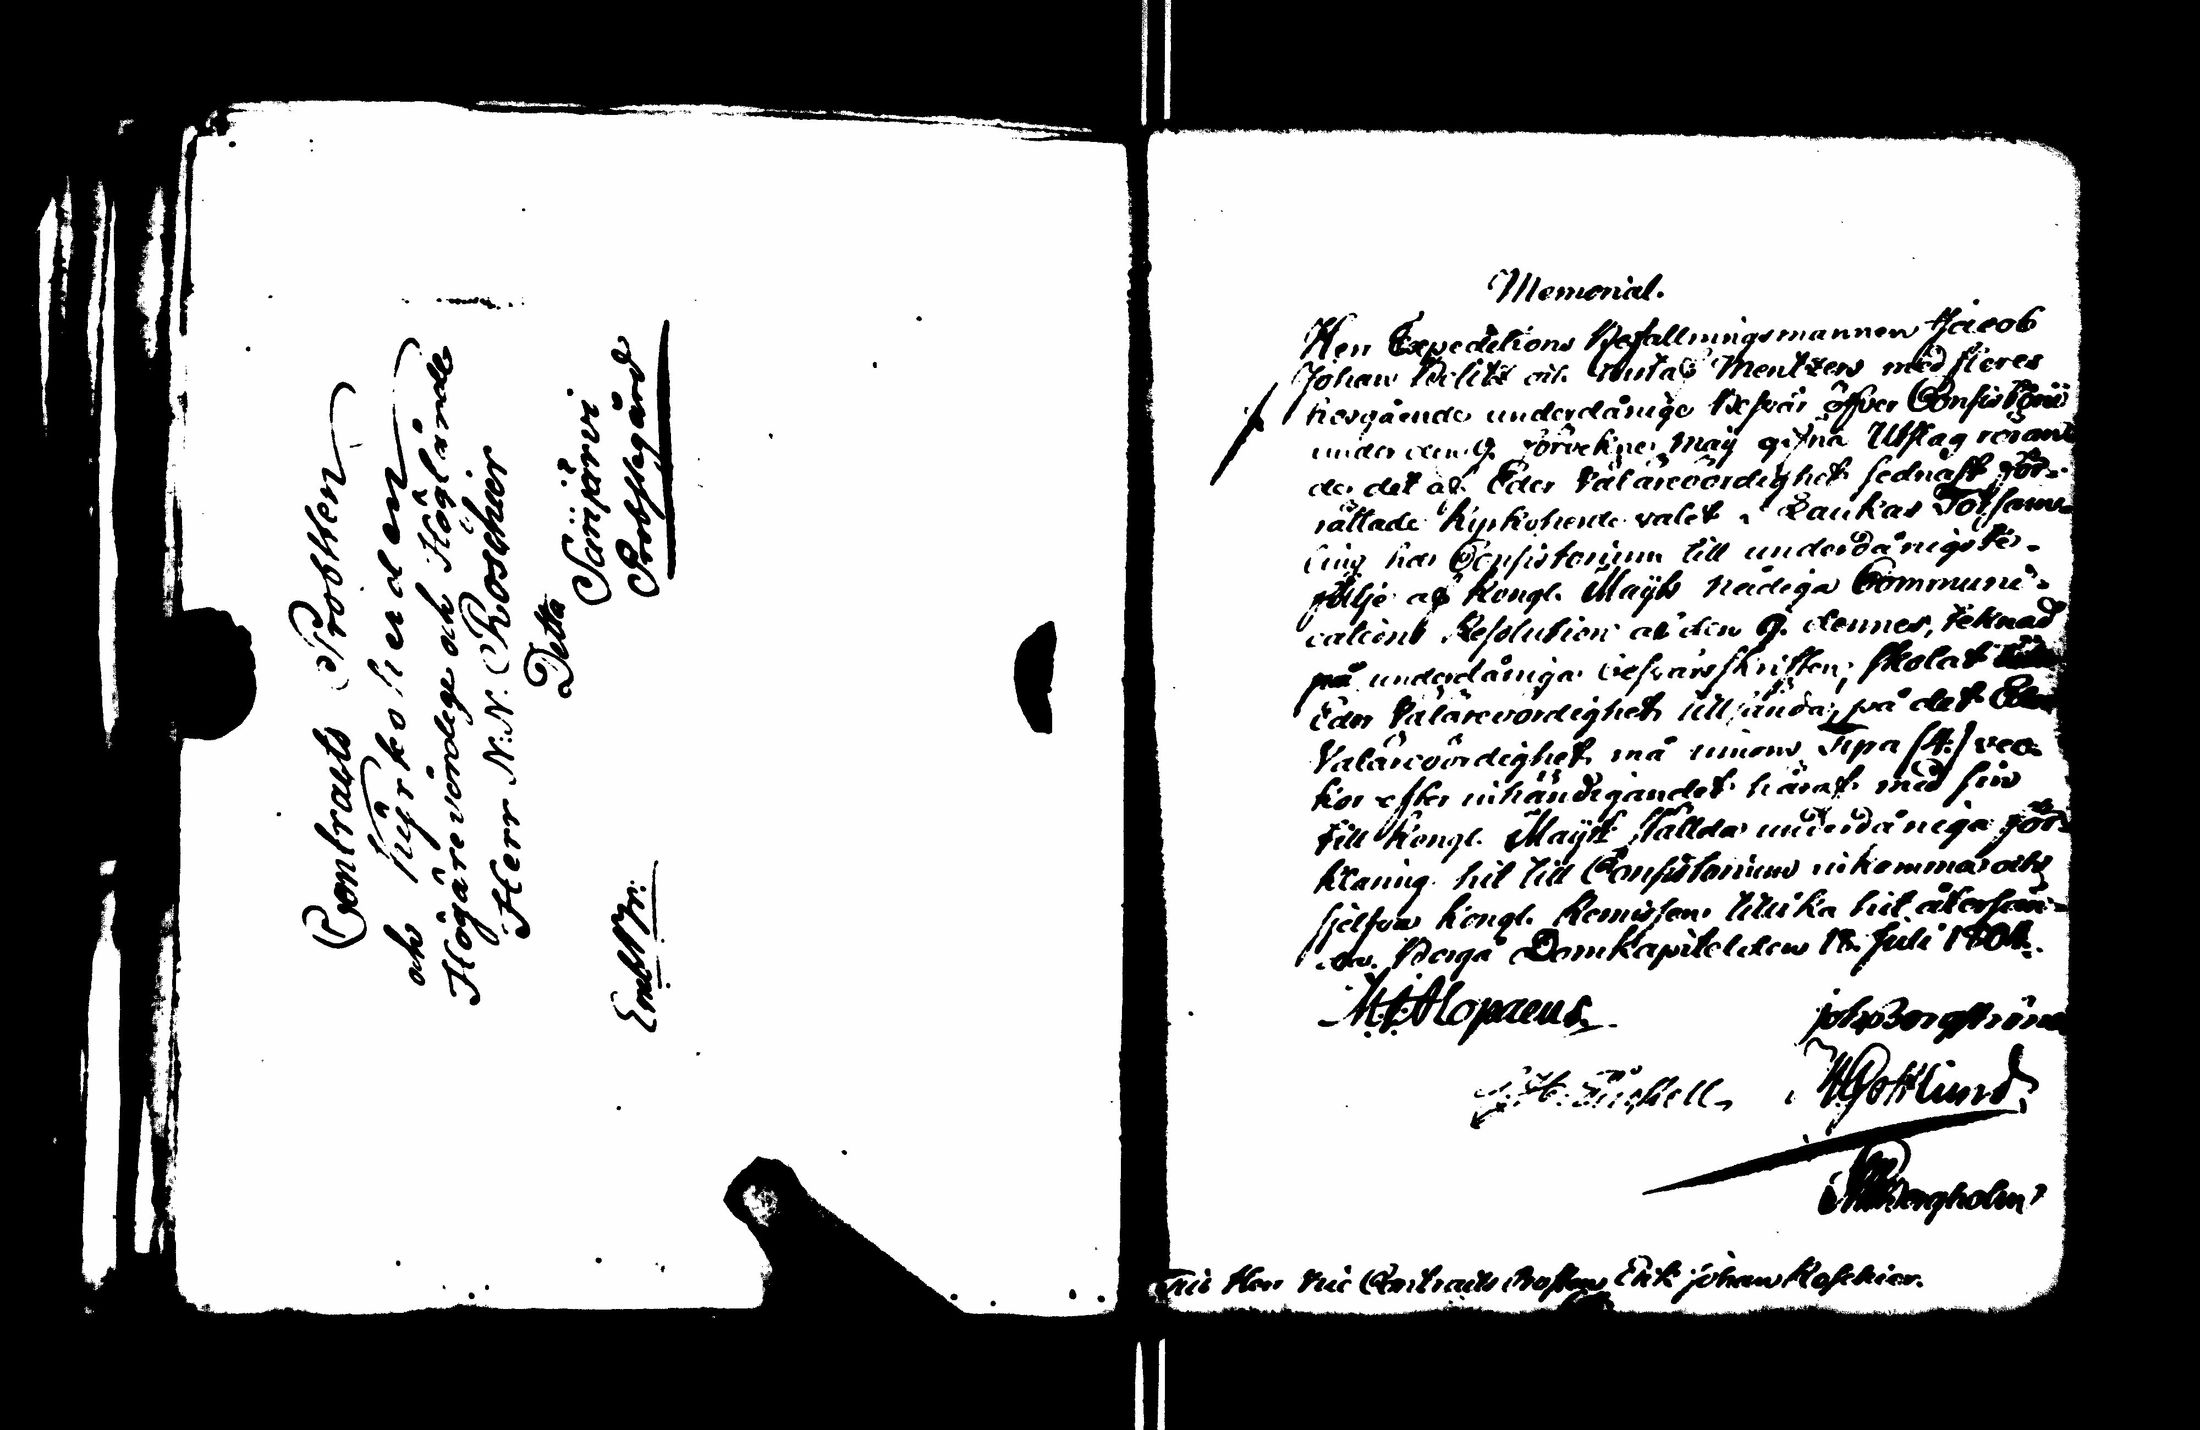 Contracts Probsten
och Kyrkoherden
Högärevördige och Höglärde
Herr N:N. Roschier
Detta
Sänjärvi
Probstegård
Embt Br:
Memorial.
Herr Expeditions Befallningsmannen Jacob
Johan Bilitz och Gustaf Mentzers med fleres
hosgående underdånige Besvär öfver Consistorii
under den 9. sörvekne May gifna Utslag röran-
de det af Eder Välärevördighet sednast för-
rättade Kyrkoherde valet i Laukas Församm-
ling har Consistorium till underdånigste-
följe af Kongl. Maÿts nådiga Communi-
cations Resolution af den 9. dennes, teknad
på underdåniga besvärsskriften, skolat
Eder Välärevördighet tillsända, på det Eder
Välärevördighet må innom Fyra (4.) vec-
kor efter inhändigandet häraf med sin
till Kongl. Maÿt ställda underdåniga för-
klaring hit till Consistorium inkomma och
sjelfva Kongl. Remissen tillika hit återsän-
da. Borgå DomKapitel den 18. Juli 1804.
M. J. Alopaeus.
Joh. Borgström
Gottlund
Bergholm
Till Herr Vic Contracts Prosten Erik Johan Roschier.